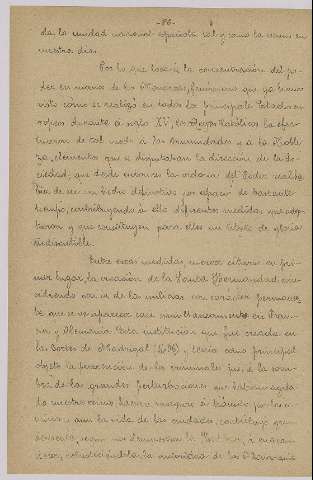 -86-
da la unidad nacional española tal y como la vemos en
nuestros dias.
Por lo que toca á la concentración del po-
der en manos de los Monarcas, fenómeno que ya hemos
visto como se realizó en todos los principales Estados eu-
ropeos durante el siglo XV, los Reyes Católicos la efec-
tuaron de tal modo á las Comunidades y a la Noble-
za, elementos que se disputaban la dirección de la So-
ciedad, que desde entonces la victoria del Poder real
ha de ser un hecho definitivo por espacio de bastante
tiempo, contribuyendo á ello diferentes medidas que adop-
taron y que constituyen para ellos un título de gloria
indiscutible.
Entre esas medidas merece citarse en pri-
mer lugar, la creación de la Santa Hermandad,
de las milicias con carácter permanen-
te que se ve aparecer casi simultáneamente en Fran-
cia y Alemania. Esta institución que fue creada en
las Cortes de Madrigal (1476), tenía como principal
objeto la persecución de los criminales que, á la som-
bra de las grandes perturbaciones que habían agita-
do nuestro reino, habían
aun la vida de los ciudades, contribuyó
como
robusteciéndola, la autoridad de los Monarcas